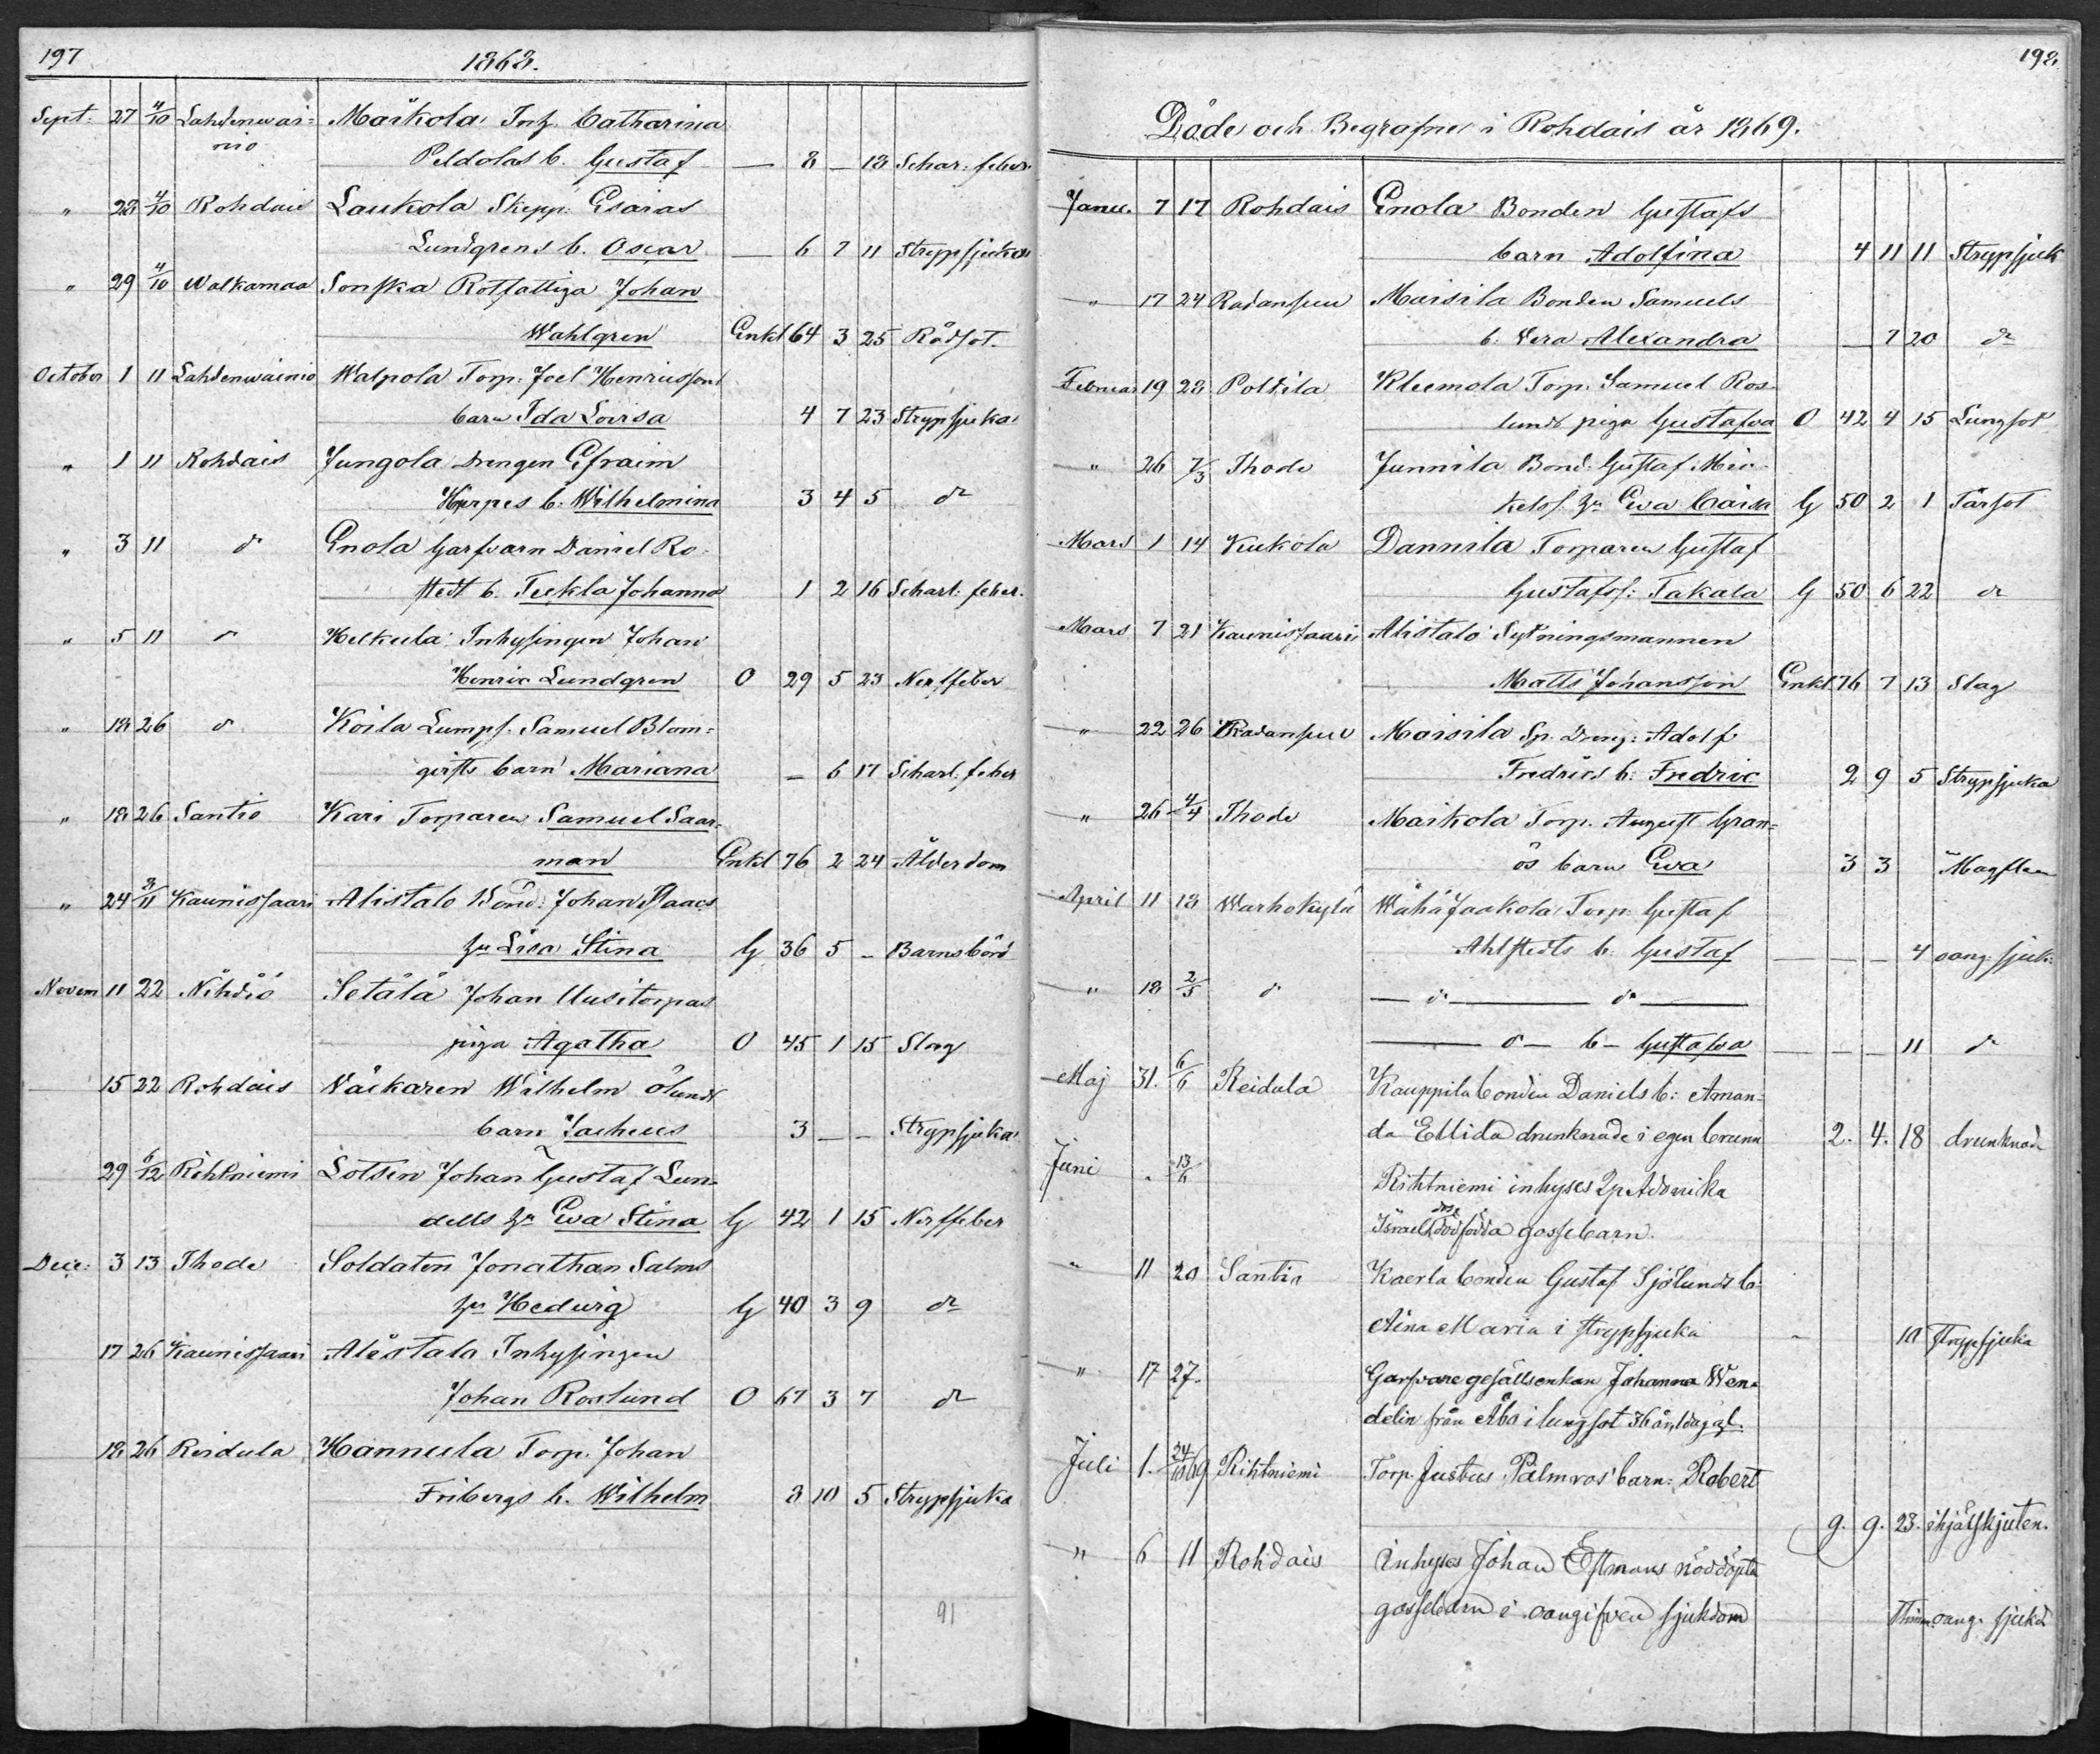 197
1868.
Sept: 27 4/10 Lahdenwai= Maikola Inh. Catharina
nio Peldolas b. Gustaf — 8 — 18 Schar: feber
" 28 4/10 Rohdais Laukola Skepp: Esaias
Lundgrens b. Oscar — 6 7 11 Strypsjuka
" 29 4/10 Walkamaa Sonska Rotfattiga Johan
Wahlgren Enkl 64 3 25 Rödsot.
October 1 11 Lahdenwainio Walpola Torp: Joel Henrikssons
barn Ida Lovisa 4 7 23 Strypsjuka
" 1 11 Rohdais Jungola Drengen Efraim
Herpes b. Wilhelmina 3 4 5 do
" 3 11 do Enola Garfvarn Daniel Ro-
stedt b. Teekla Johanna 1 2 16 Scharl: feber.
" 5 11 do Helkula Inhysingen Johan
Henric Lundgren O 29 5 23 Nerffeber
" 18 26 do Koila Lumps. Samuel Blom=
qvists barn Mariana — 6 17 Scharl: feber
" 18 26 Santio Kari Torparen Samuel Saar=
man Enkl 76 2 24 Ålderdom
" 24 8/11 Kaunissaari Alistalo Bond: Johan Isaacs
hu Lisa Stina G 36 5 — Barnsbörd
Novem 11 22 Nihdiö Setälä Johan Uusitorpas
piga Agatha O 45 1 15 Slag
15 22 Rohdais Wäkaren Wilhelm Ölunds
barn Zacheus 3 — — Strypsjuka
29 6/12 Rihtniemi Lotsen Johan Gustaf Lun=
dells hu Ewa Stina G 42 1 15 Nerffeber
Dece: 3 13 Thode Soldaten Jonathan Salms
hu Hedwig G 40 3 9 do
17 26 Kaunissaari Alistalo Inhysingen
Johan Roslund O 67 3 7 do
18 26 Reidula Hannula Torp. Johan
Fribergs b. Wilhelm 3 10 5 Strypsjuka
91
198
Döde och Begrafne i Rohdais år 1869.
Janu. 7 17 Rohdais Enola Bonden Gustafs
barn Adolfina 4 11 11 Strypsjuk
" 17 24 Radansuu Maisila Bonden Samuels
b. Wera Alexandra — 7 20 do
Februar 19 28 Poldila Kleemola Torp. Samuel Ros-
lunds piga Gustafva O 42 4 15 Lungsot
" 26 7/3 Thode Junnila Bond. Gustaf Mic-
kelss. hu Ewa Caisa G 50 2 1 Tärsot
Mars 1 14 Kukola Dannila Torparen Gustaf
Gustafss: Takala G 50 6 22 do
Mars 7 21 Kaunissaari Alistalo Sytningsmannen
Matts Johansson Enkl 76 7 13 Slag
" 22 26 Radansuu Maisila Sp. Dreng: Adolf
Fredrics b: Fredric 2 9 5 Strypsjuka
" 26 4/4 Thode Maikola Torp. August Gran=
ös barn Ewa 3 3
April 11 18 Warhokylä Wähä Jaakola Torp. Gustaf
Ahlstedts b. Gustaf — — — 4 oang: sjuk:
" 18 2/5 do — do — do —
— do — b — Gustafva — — — 11 do
Maj 31. 6/6 Reidula Kauppila bonden Daniels b: Aman-
da Ellida drunknade i egen brunn 2. 4. 18 drunknad
Juni . 13/6 Rihtniemi inhyses Adonika
Israel dödfödda gossebarn.
" 11 20 Santio Kaerla bonden Gustaf Sjölunds b.
Aina Maria i strypsjuka 10 strypsjuka
" 17 27. Garfvare gesällsenkan Johanna Wen=
delin från Åbo i lungsot 36 år, 1 dag gl.
Juli 1. 24/10 69 Rihtniemi Torp. Justus Palmros' barn: Robert
9. 9. 23. ihjälskjuten.
" 6 11 Rohdais Inhyses Johan Estmans nöddöpta
gossebarn i oangifven sjukdom oang. sjukd